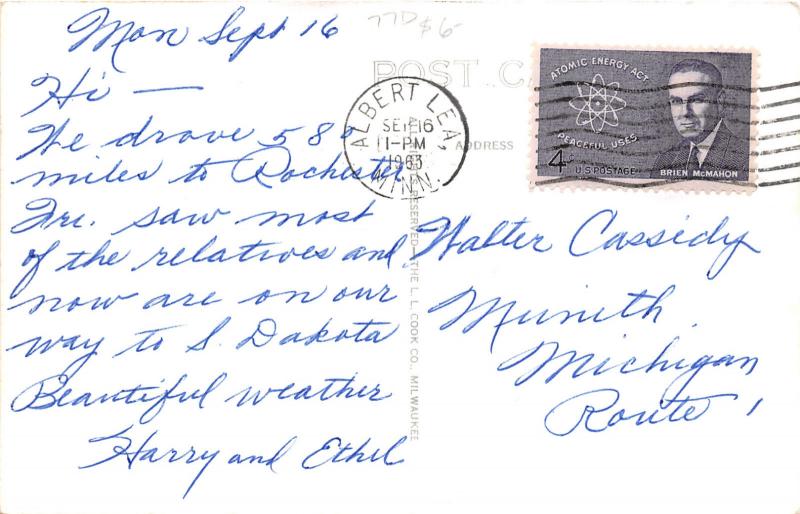 77D $6-
Mon Sept 16
Hi —
We drove 580
miles to Rochester
Fri. saw most
of the relatives and
now are on our
way to S. Dakota
Beautiful weather
Harry and Ethel
POST CA
ADDRESS
ALBERT LEA,
SEP 16
1-PM
1963
MINN.
RESERVED—THE L. L. COOK CO., MILWAUKEE
ATOMIC ENERGY ACT
PEACEFUL USES
4¢
U.S. POSTAGE
BRIEN McMAHON
Walter Cassidy
Munith
Michigan
Route 1